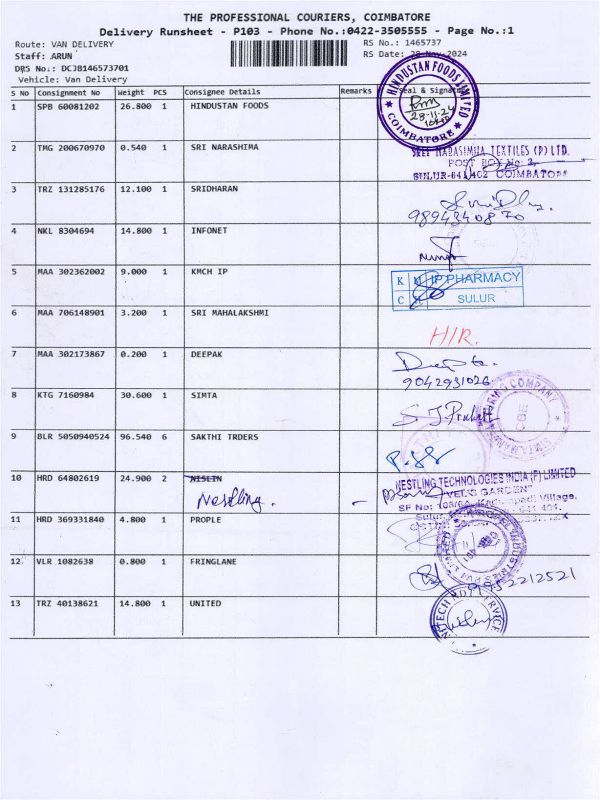 THE PROFESSIONAL COURIERS, COIMBATORE
Delivery Runsheet - P103 - Phone No.:0422-3505555 - Page No.:1
Route: VAN DELIVERY RS No.: 1465737
Staff: ARUN RS Date: 28-Nov-2024
DRS No.: DCJB146573701
Vehicle: Van Delivery
S No Consignment No Weight PCS Consignee Details Remarks Seal & signature
1 SPB 60081202 26.800 1 HINDUSTAN FOODS
HINDUSTAN FOODS LIMITED
28-11-24
COIMBATORE
2 TMG 200670970 0.540 1 SRI NARASHIMA
SREE NARASIMHA TEXTILES (P) LTD.
POST BOX No: 2,
SULUR-641402 COIMBATORE
3 TRZ 131285176 12.100 1 SRIDHARAN
9894340870
4 NKL 8304694 14.800 1 INFONET
5 MAA 302362002 9.000 1 KMCH IP
K M IP PHARMACY
C SULUR
6 MAA 706148901 3.200 1 SRI MAHALAKSHMI
H/R.
7 MAA 302173867 0.200 1 DEEPAK
9042931026
8 KTG 7160984 30.600 1 SIMTA
COMPANY
CBE
9 BLR 5050940524 96.540 6 SAKTHI TRDERS
10 HRD 64802619 24.900 2 NISLIN
Nestling. -
NESTLING TECHNOLOGIES INDIA (P) LIMITED
"VELG GARDEN"
SF No: Village,
Sulur
11 HRD 369331840 4.800 1 PROPLE
INDUSTRIES
12 VLR 1082638 0.800 1 FRINGLANE
9952212521
13 TRZ 40138621 14.800 1 UNITED
SERVICE